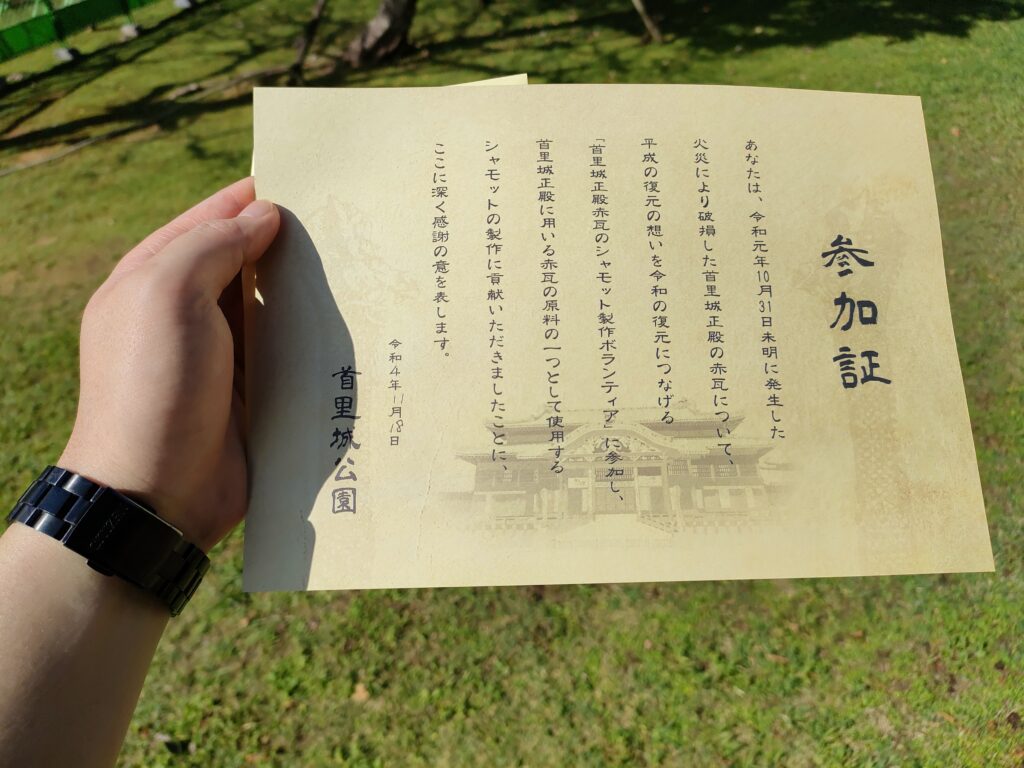 参加証
あなたは、令和元年10月31日未明に発生した
火災により破損した首里城正殿の赤瓦について、
平成の復元の想いを令和の復元につなげる
「首里城正殿赤瓦のシャモット製作ボランティア」に参加し、
首里城正殿に用いる赤瓦の原料の一つとして使用する
シャモットの製作に貢献いただきましたことに、
ここに深く感謝の意を表します。
令和4年11月18日
首里城公園